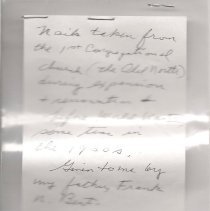 Nails taken from
the 1st Congregational
Church (the Old North)
during expansion
+ renovation
some time in
the 1950s.
Given to me by
my father, Frank